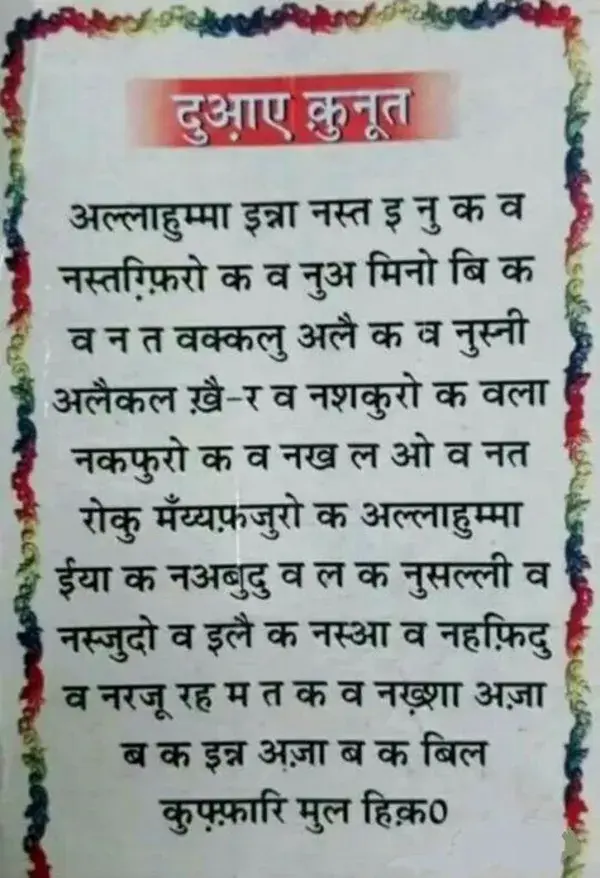 दुआ़ए क़ुनूत
अल्लाहुम्मा इन्ना नस्त इ नु क व
नस्तग़्फ़िरो क व नुअ मिनो बि क
व न त वक्कलु अलै क व नुस्नी
अलैकल ख़ै-र व नशकुरो क वला
नकफुरो क व नख ल ओ व नत
रोकु मँय्यफ़जुरो क अल्लाहुम्मा
ईया क नअबुदु व ल क नुसल्ली व
नस्जुदो व इलै क नस्आ व नहफ़िदु
व नरजू रह म त क व नख़्शा अज़ा
ब क इन्न अज़ा ब क बिल
कुफ़्फ़ारि मुल हिक़०